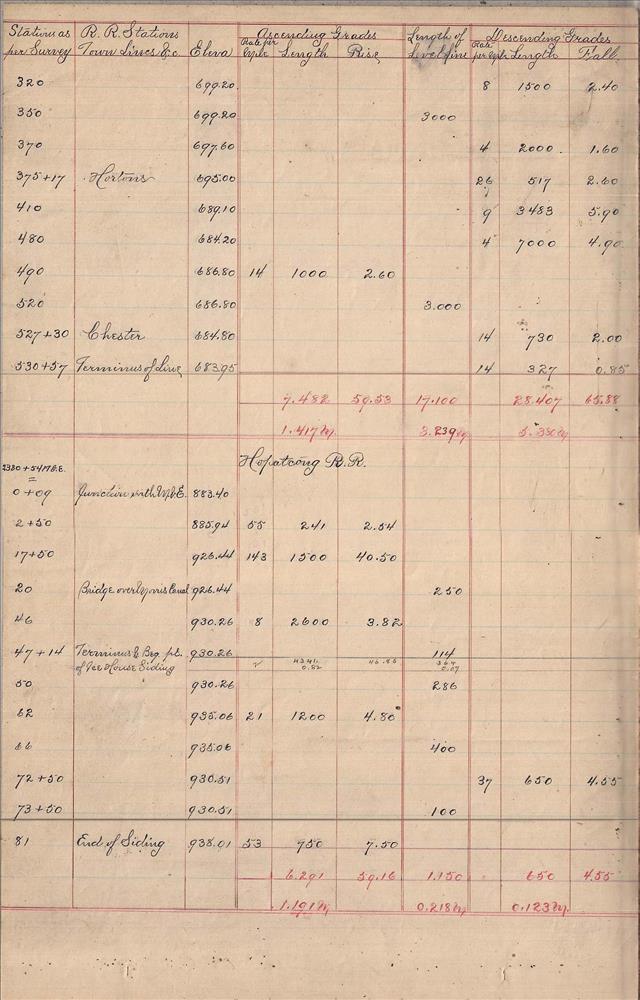 Stations as R. R. Stations Ascending Grades Length of Descending Grades
per Survey Town Lines &c Eleva Rate per Mile Length Rise Level line Rate per Mile Length Fall
320 699.20 8 1500 2.40
350 699.20 3000
370 697.60 4 2000 1.60
375+17 Hortons 695.00 26 517 2.60
410 689.10 9 3483 5.90
480 684.20 4 7000 4.90
490 686.80 14 1000 2.60
520 686.80 3.000
527+30 Chester 684.80 14 730 2.00
530+57 Terminus of Line 683.95 14 327 0.85
7.482 59.53 17.100 28.407 65.88
1.417 M. 3.239 M 5.380 M.
Hopatcong R.R.
2330+54 M&E.
0+09 Junction with M&E. 883.40
2+50 885.94 55 241 2.54
17+50 926.44 143 1500 40.50
20 Bridge over Morris Canal 926.44 250
46 930.26 8 2600 3.82
47+14 Terminus & Beg. pt. 930.26 114
of Ice House Siding 4341 46.86 364
0.82 0.07
50 930.26 286
62 935.06 21 1200 4.80
66 935.06 400
72+50 930.51 37 650 4.55
73+50 930.51 100
81 End of Siding 938.01 53 750 7.50
6.291 59.16 1.150 650 4.55
1.191 M. 0.218 M 0.123 M.